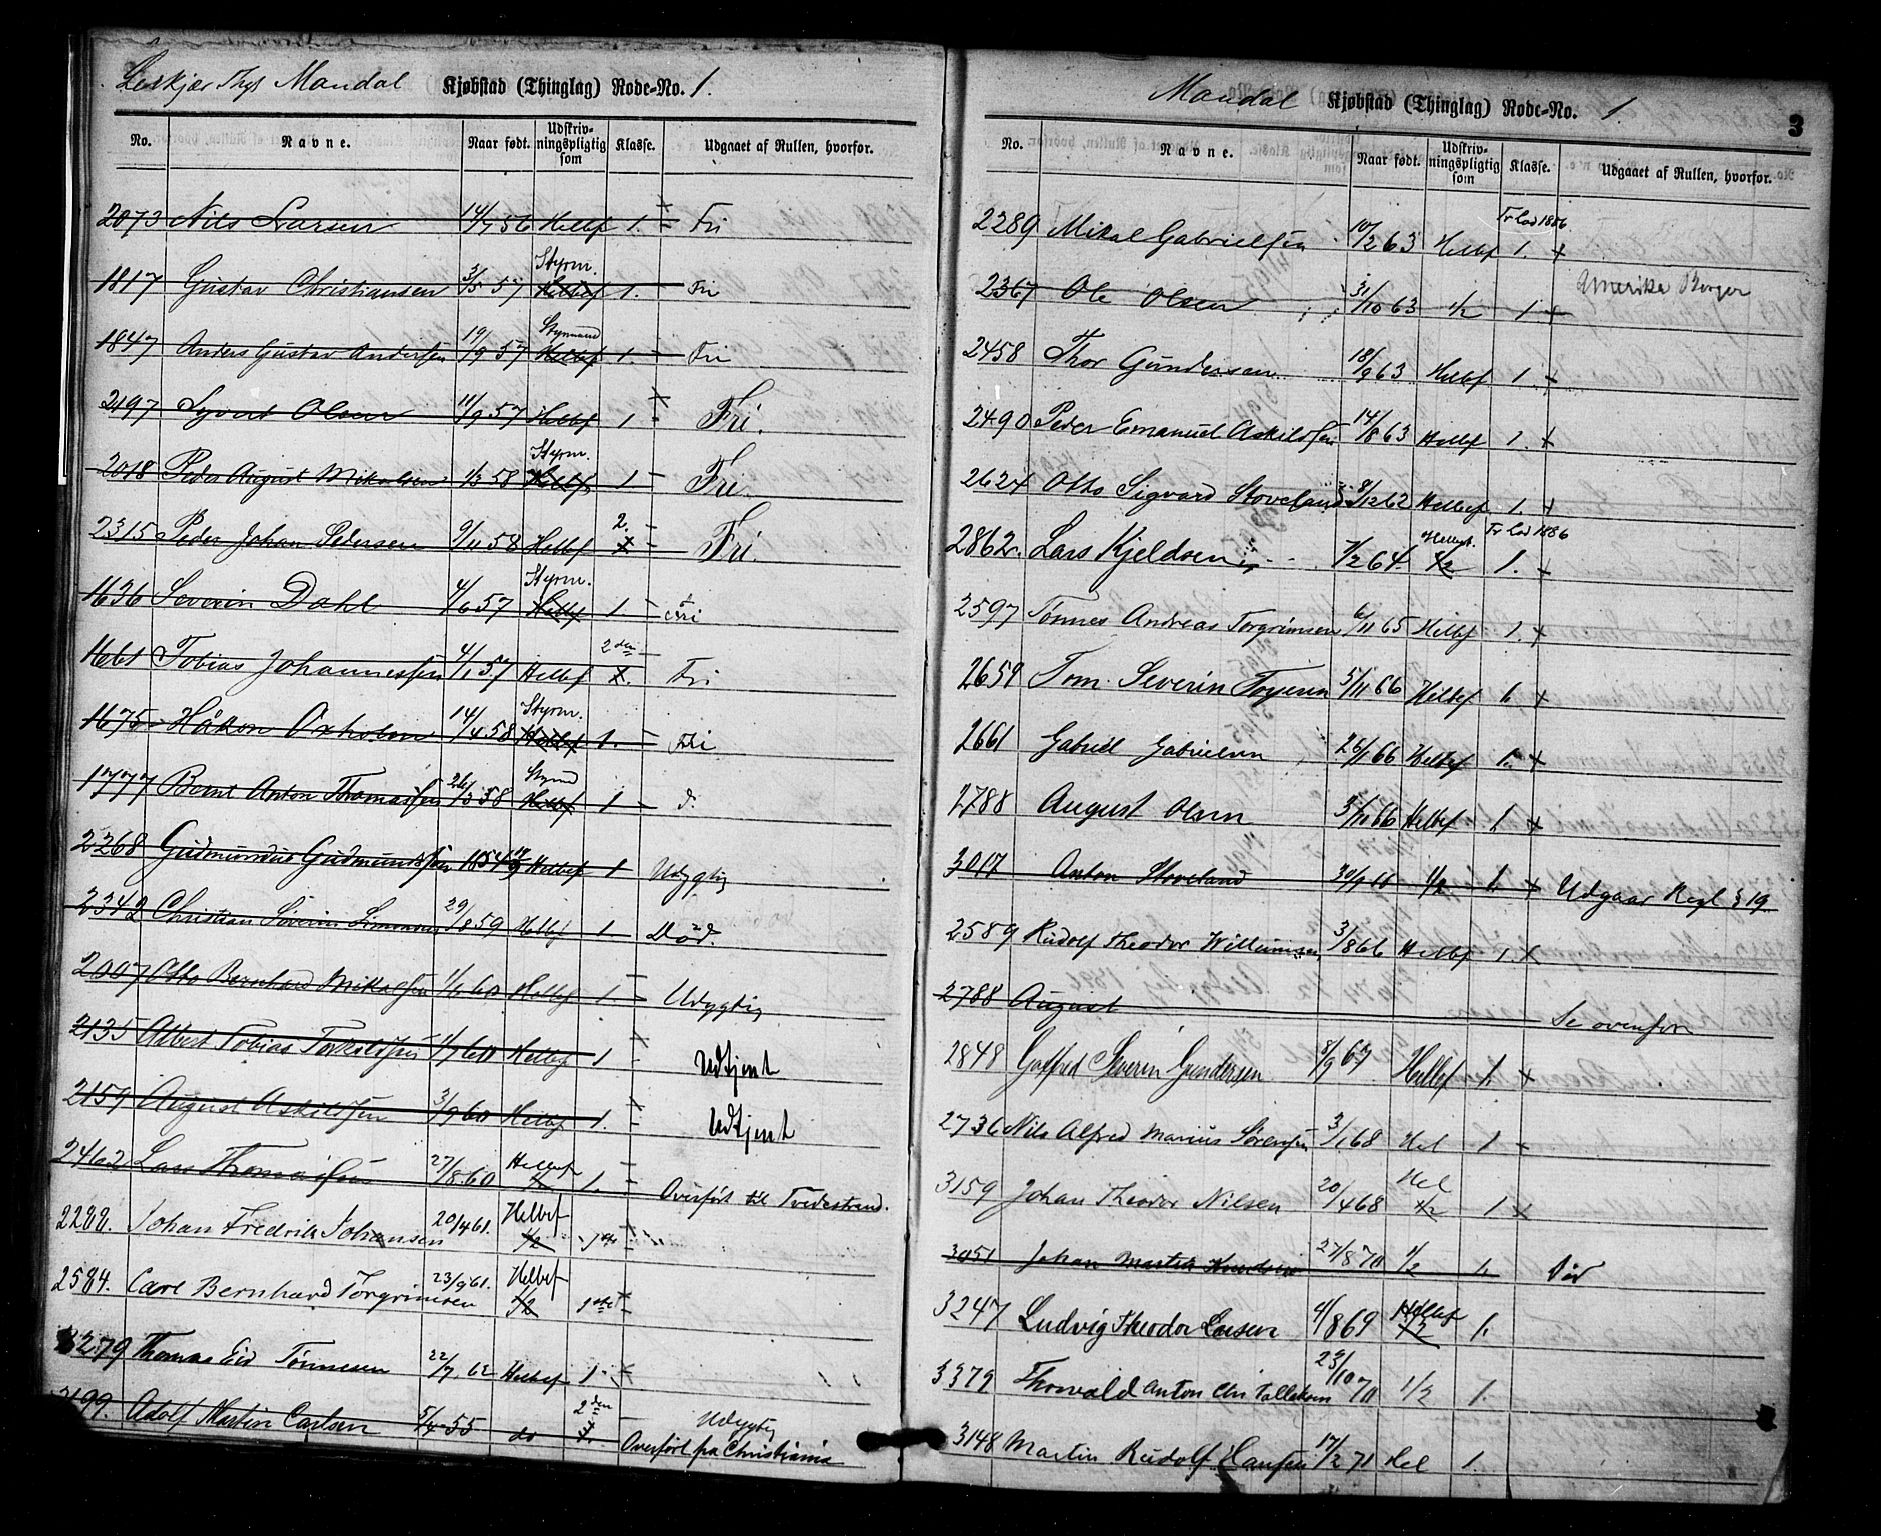 Mandal Kjøbstad (Thinglag) Rode-No. 1.
No. Navne. Naar født. Udskrivningspligtig som Klasse. Udgaaet af Rullen, hvorfor.
2073 Nils Larsen 14/7 56 Helbef 1. Fri
Styrm.
1817 Gustav Christiansen 3/5 57 Helbef 1. Fri
Styrmand
1847 Anders Gustav Andersen 19/9 57 Helbef 1 Fri
2197 Syvert Olsen 11/9 57 Helbef 1 Fri.
Styrm.
2018 Peder August Mikalsen 1/3 58 Helbef 1 Fri.
2.
2315 Peder Johan Pedersen 9/11 58 Helbef Fri.
Styrm.
1636 Severin Dahl 4/6 57 Helbef 1 Fri
2den
1661 Tobias Johannessen 4/1 57 Helbef Fri
Styrm.
1675 Håkon Oxholm 14/4 58 Helbef 1. Fri
Styrmd
1777 Bernt Anton Thomassen 26/3 58 Helbef 1 d.
2268 Gudmundus Gudmundsen 1854 Helbef 1 Udygtig
2342 Christian Severin Simonsen 29/8 59 Helbf 1 Død.
2007 Otto Bernhard Mikalsen 1/6 60 Helbef 1. Udygtig
2135 Albert Tobias Torkildsen 1/7 60 Helbef 1. Udtjent
2159 August Askildsen 3/9 60 Helbf 1. Udtjent
2462 Lars Thomassen 27/8 60 Helbef 1/2 1. Overført til Tvedestrand.
2282. Johan Fredrik Johansen 20/4 61. Helbef 1/2 1ste
2584. Carl Bernhard Torgrimsen 23/9 61. Helbef 1/2 1ste
3279 Thomas Eid Tønnesen 22/7 62 Helbef 1
2den
2199. Adolf Martin Carlsen 5/4 55 do Udygtig
Overført fra Christiania
Mandal Kjøbstad (Thinglag) Rode-No. 1.
3
No. Navne. Naar født. Udskrivningspligtig som Klasse. Udgaaet af Rullen, hvorfor.
2289 Mikal Gabrielsen 10/2 63 Helbf 1. +
2367 Ole Olsen 3/10 63 1/2 1 + Amerika Borger
2458 Thor Gundersen 18/9 63 Helbf 1. +
2490 Peder Emanuel Askildsen 14/8 63 Helbf 1. +
2624 Otto Sigvard Stoveland 8/12 62 Helbef 1. +
2862 Lars Kjeldsen 7/2 64 1/2 1. +
2597 Tønnes Andreas Torgrimsen 6/11 65 Helbf 1. +
2659 Tom Severin 5/11 66 Helbef 1. +
2661 Gabriel Gabrielsen 26/1 66 Helbef 1. +
2788 August Olsen 3/10 66 Helbef 1. +
3017 Anton Stoveland 1/2 1. + Udgaar Regl § 19
2589 Rudolf Theodor Willumsen 3/8 66 Helbf 1. +
2788 August Se ovenfor
2848 Gotfred Severin Gundersen 8/9 67 Helbef 1. +
2736 Nils Alfred Marius Sørensen 3/1 68 Hel 1.
Hel
3159 Johan Theodor Nilsen 20/4 68 1/2 1 +
3051 Johan Martin Knudsen 27/8 70 1/2 1. Død
3247 Ludvig Theodor Larsen 4/8 69 Helbef 1/2 1.
3379 Thorvald Anton Chr Tallaksen 23/10 70 1/2 1.
3148 Martin Rudolf Hansen 17/2 71 Hel 1.